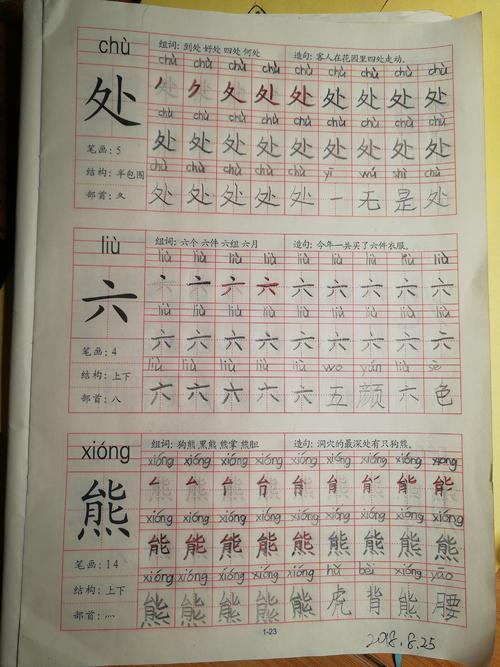 chù
组词: 到处 好处 四处 何处 造句: 客人在花园里四处走动。
chù chù chù chù chù chù chù chù chù
处 处 处 处 处 处 处
chù chù chù chù chù chù chù chù chù
处
处 处 处 处 处 处 处 处 处
笔画: 5
结构: 半包围
chù chù chù chù chù yī wú shì chù
部首: 夂
处 处 处 处 处 一 无 是 处
liù
组词: 六个 六件 六组 六月 造句: 今年一共买了六件衣服。
liù liù liù liù liù liù liù liù liù
六 六 六 六 六 六
liù liù liù liù liù liù liù liù liù
六
六 六 六 六 六 六 六 六 六
笔画: 4
结构: 上下
liù liù liù liù liù wǔ yán liù sè
部首: 八
六 六 六 六 六 五 颜 六 色
xióng
组词: 狗熊 黑熊 熊掌 熊胆 造句: 洞穴的最深处有只狗熊。
xióng xióng xióng xióng xióng xióng xióng xióng xióng
xióng xióng xióng xióng xióng xióng xióng xióng xióng
熊
熊 熊 熊 熊 熊
笔画: 14
结构: 上下
xióng xióng xióng xióng xióng hǔ bèi xióng yāo
部首: 灬
熊 熊 熊 熊 熊 虎 背 熊 腰
1-23
2018.8.25